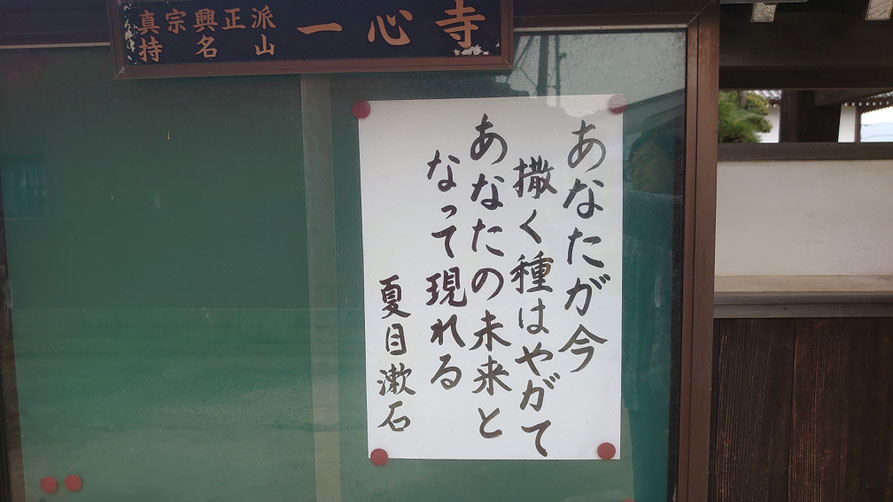 真宗興正派
持名山
一心寺
あなたが今
撒く種はやがて
あなたの未来と
なって現れる
夏目漱石